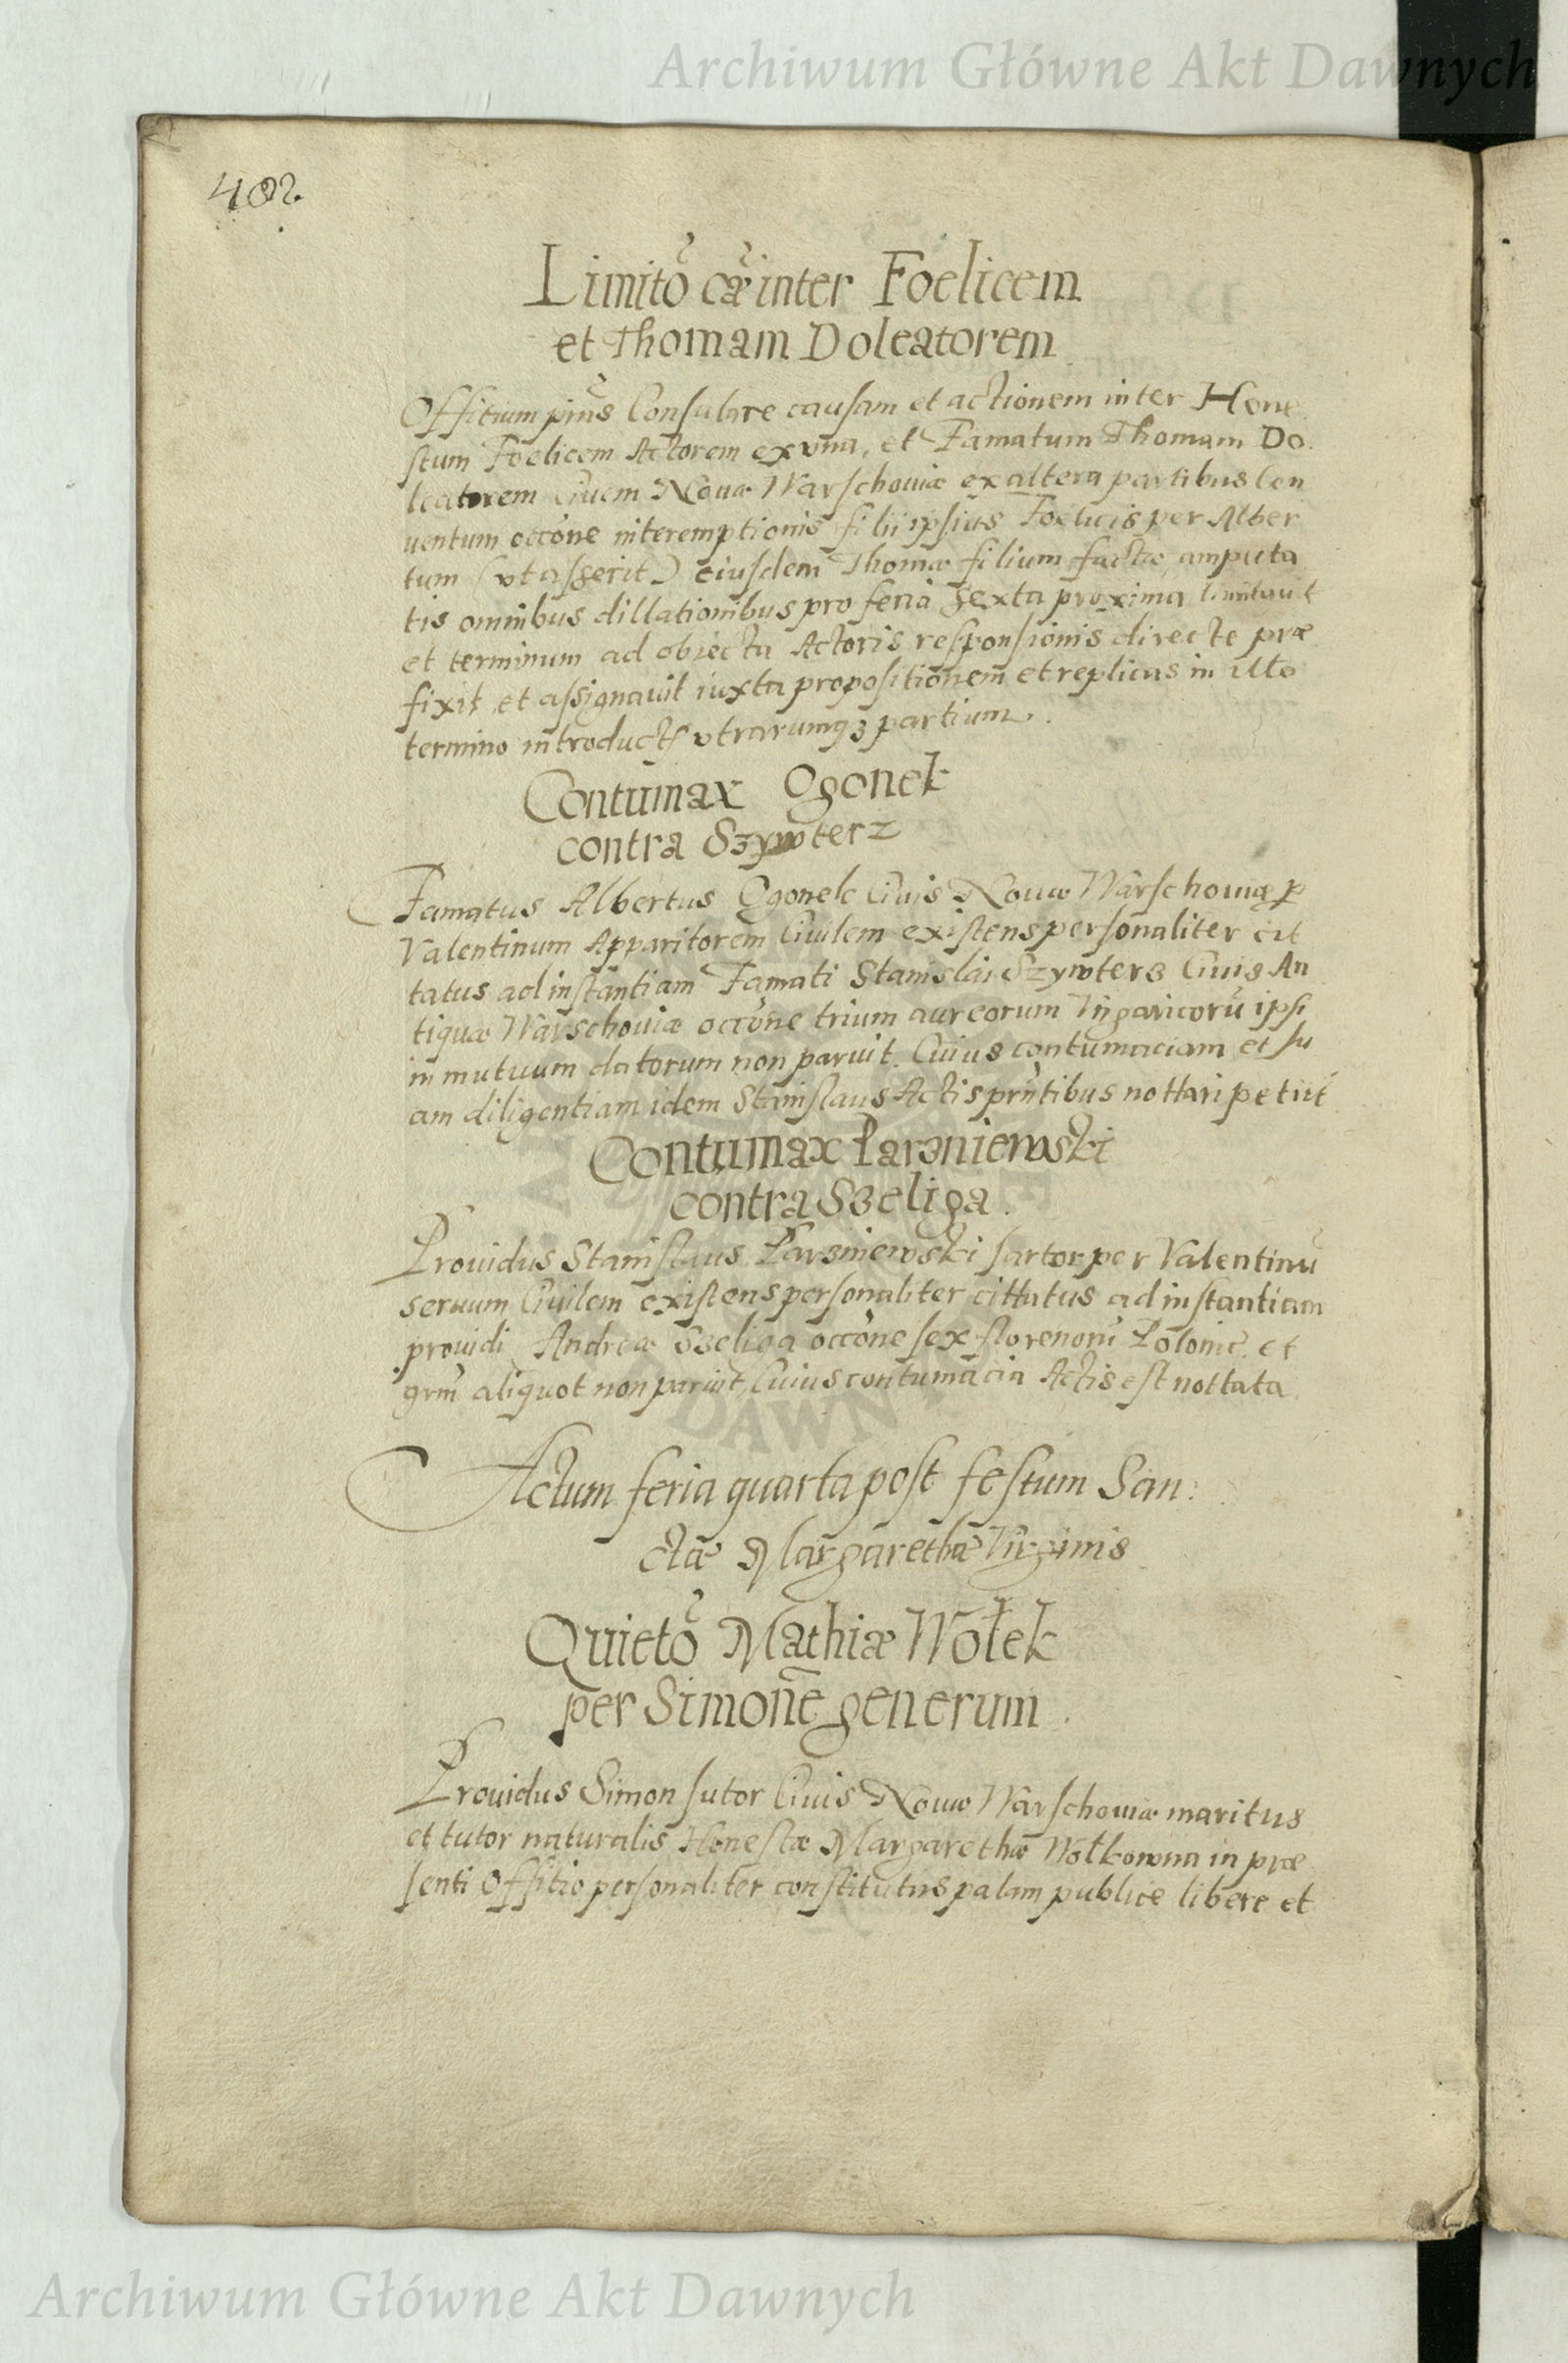 Archiwum Główne Akt Dawnych
402.
Limitõ cæ inter Foelicem
et Thomam Doleatorem
Offitium pñs Consulare causam et actionem inter Hone
stum Foelicem Actorem ex vna, et Famatum Thomam Do
leatorem Ciuem Nouæ Warschouiæ ex altera partibus Con
uentum occõne interemptionis filii ipsius Foelicis per Alber
tum (vt asserit) eiusdem Thomæ filium factæ amputa
tis omnibus dillationibus pro feria sexta proxima limitauit
et terminum ad obiecta Actoris responsionis directe præ
fixit et assignauit iuxta propositionem et replicas in illo
termino introduct vtrarumqȝ partium.
Contumax Ogonek
contra Szywterz
Famatus Albertus Ogonek Ciuis Nouæ Warschouiæ p
Valentinum Apparitorem Ciuilem existens personaliter cit
tatus ad instantiam Famati Stanislai Szywterz Ciuis An
tiquæ Warschouiæ occõne trium aureorum Vngaricorũ ipsi
in mutuum datorum non paruit. Cuius contumaciam et su
am diligentiam idem Stanislaus Actis prñtibus nottari petiit
Contumax Parzniewski
contra Szeliga.
Prouidus Stanislaus Parzniewski sartor per Valentinũ
seruum Ciuilem existens personaliter cittatus ad instantiam
prouidi Andreæ Szeliga occõne sex florenorũ Polonic. et
grm̃ aliquot non paruit, Cuius contumacia Actis est nottata.
Actum feria quarta post festum San:
ctæ Margarethæ Virginis
Quietõ Mathiæ Wołek
per Simonẽ generum.
Prouidus Simon sutor Ciuis Nouæ Warschouiæ maritus
et tutor naturalis Honestæ Margarethæ Wołkowna in præ
senti Offitio personaliter constitutus palam publice libere et
DAWN
Archiwum Główne Akt Dawnych